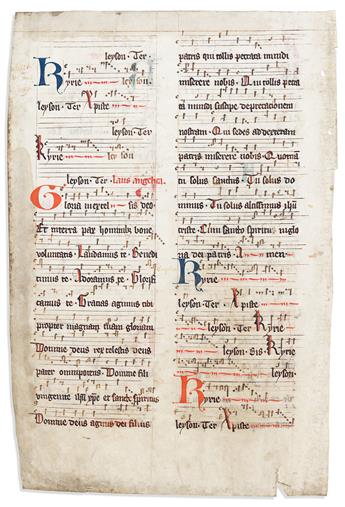 leyson · Ter ·
Kyrie leyson ·
leyson · Ter Xpiste
leyson · Ter
Kyrie leyson
leyson · Ter · Laus angelica
Gloria in excel sis deo
Et in terra pax hominib; bone
voluntatis · Laudamus te · Benedi
cimus te · Adoramus te · Glorifi
camus te · Gratias agimus tibi
propter magnam tuam gloriam
Domine deus rex celestis deus
pater omnipotens · Domine fili
unigenite et sancte spiritus
Domine deus agnus dei filius
patris qui tollis peccata mundi
miserere nobis · Qui tollis pecca
ta mundi suscipe deprecationem
nostram · Qui sedes ad dexteram
patris miserere nobis · Quonia
tu solus sanctus · Tu solus do
minus · Tu solus altissimus
criste · Cum sancto spiritu in glo
ria dei patris · A men ·
Kyrie
leyson · Ter · Xpiste
leyson · Ter Kyrie
leyson · Bis · Kyrie
leyson ·
Kyrie
leyson · Ter Xpiste